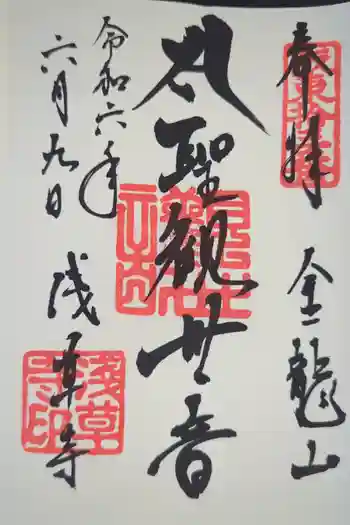 奉拝 金龍山
聖観世音
令和六年
六月九日
浅草寺
浅草寺印